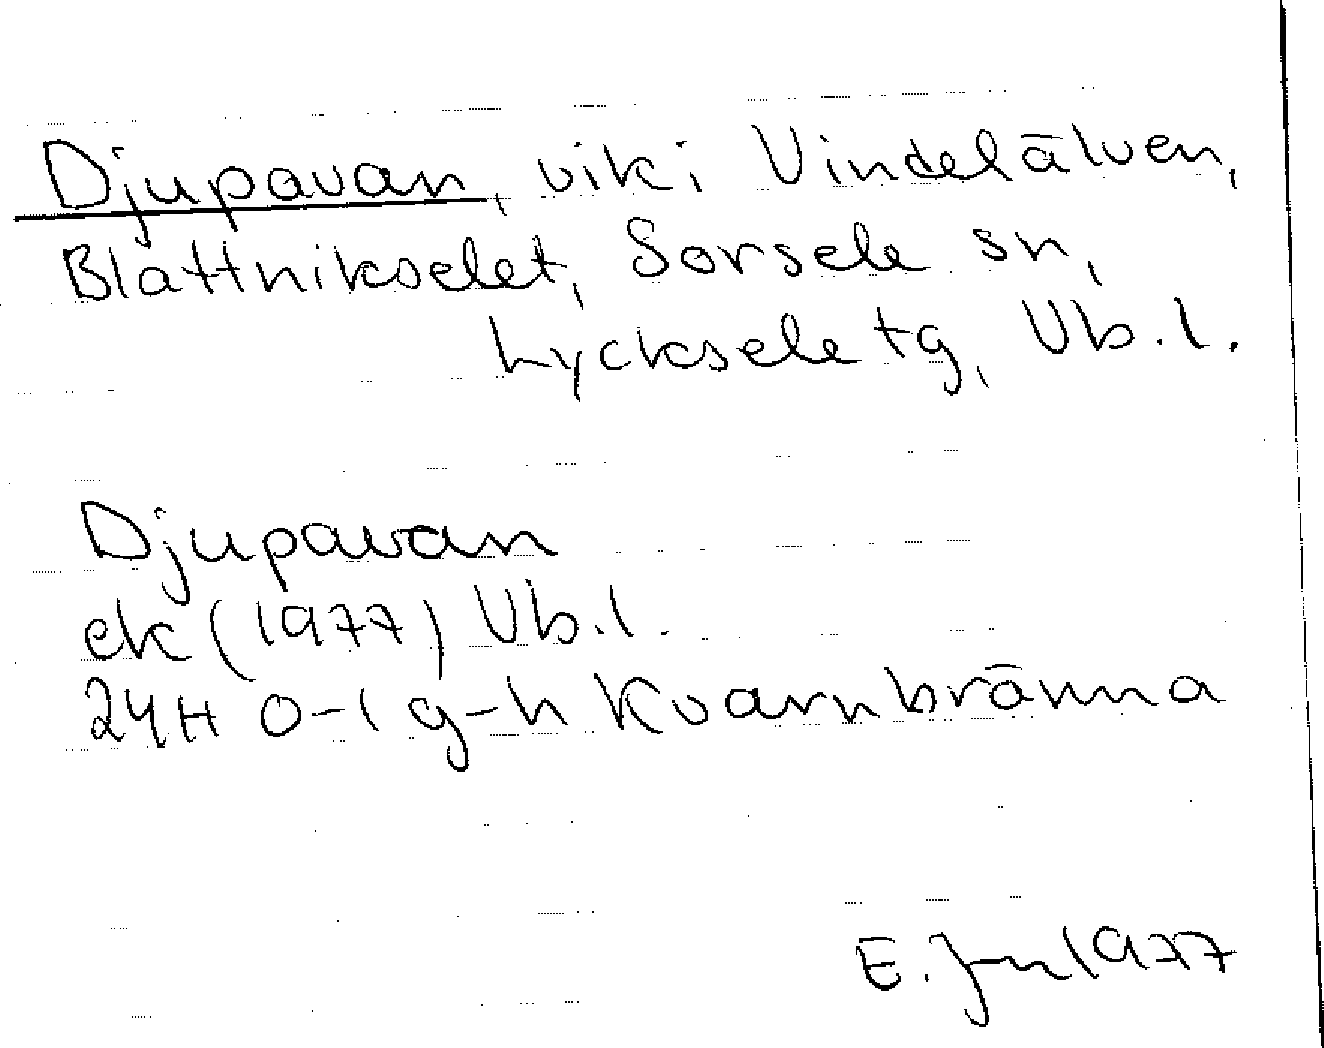 Djupavan, vik i Vindelälven,
Blattnikselet, Sorsele sn,
Lycksele tg, Vb.l.
Djupavan
ek (1977) Vb.l.
24H 0-1 g-h Kvarnbränna
E. 1977